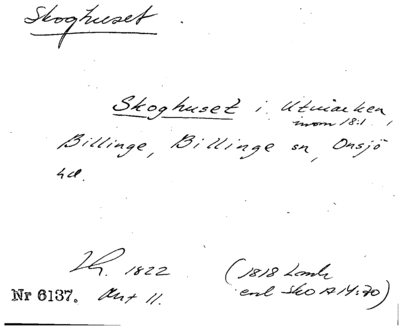 Skoghuset.
Skoghuset i Utmarken,
inom 18:1
Billinge, Billinge sn, Onsjö
hd.
1822 (1818 Lantm
Nr 6137. Akt 11. enl Sko A14:70)